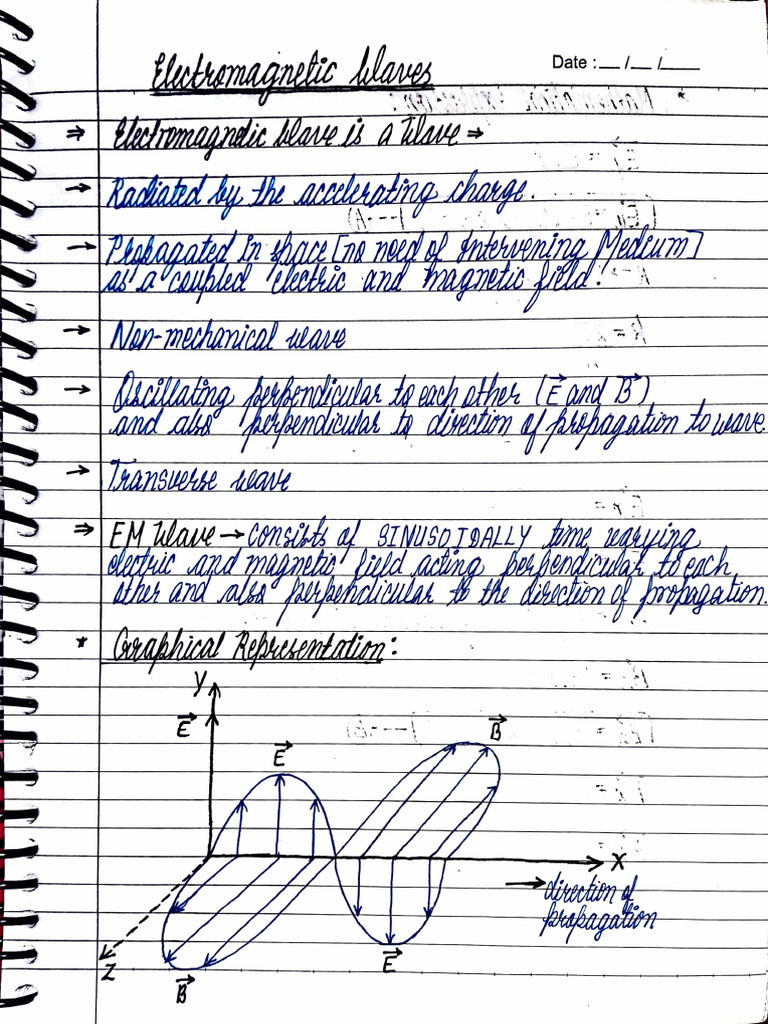 Electromagnetic Waves
Date : __ / __ / ____
⇒ Electromagnetic Wave is a Wave ⇒
→ Radiated by the accelerating charge.
→ Propagated in space [no need of Intervening Medium]
as a coupled electric and magnetic field.
→ Non-mechanical wave
→ Oscillating perpendicular to each other (E⃗ and B⃗)
and also perpendicular to direction of propagation to wave.
→ Transverse wave
⇒ EM Wave → consists of SINUSOIDALLY time varying
electric and magnetic field acting perpendicular to each
other and also perpendicular to the direction of propagation.
* Graphical Representation:
Y
E⃗
E⃗
B⃗
X
→ direction of
propagation
Z
B⃗
E⃗